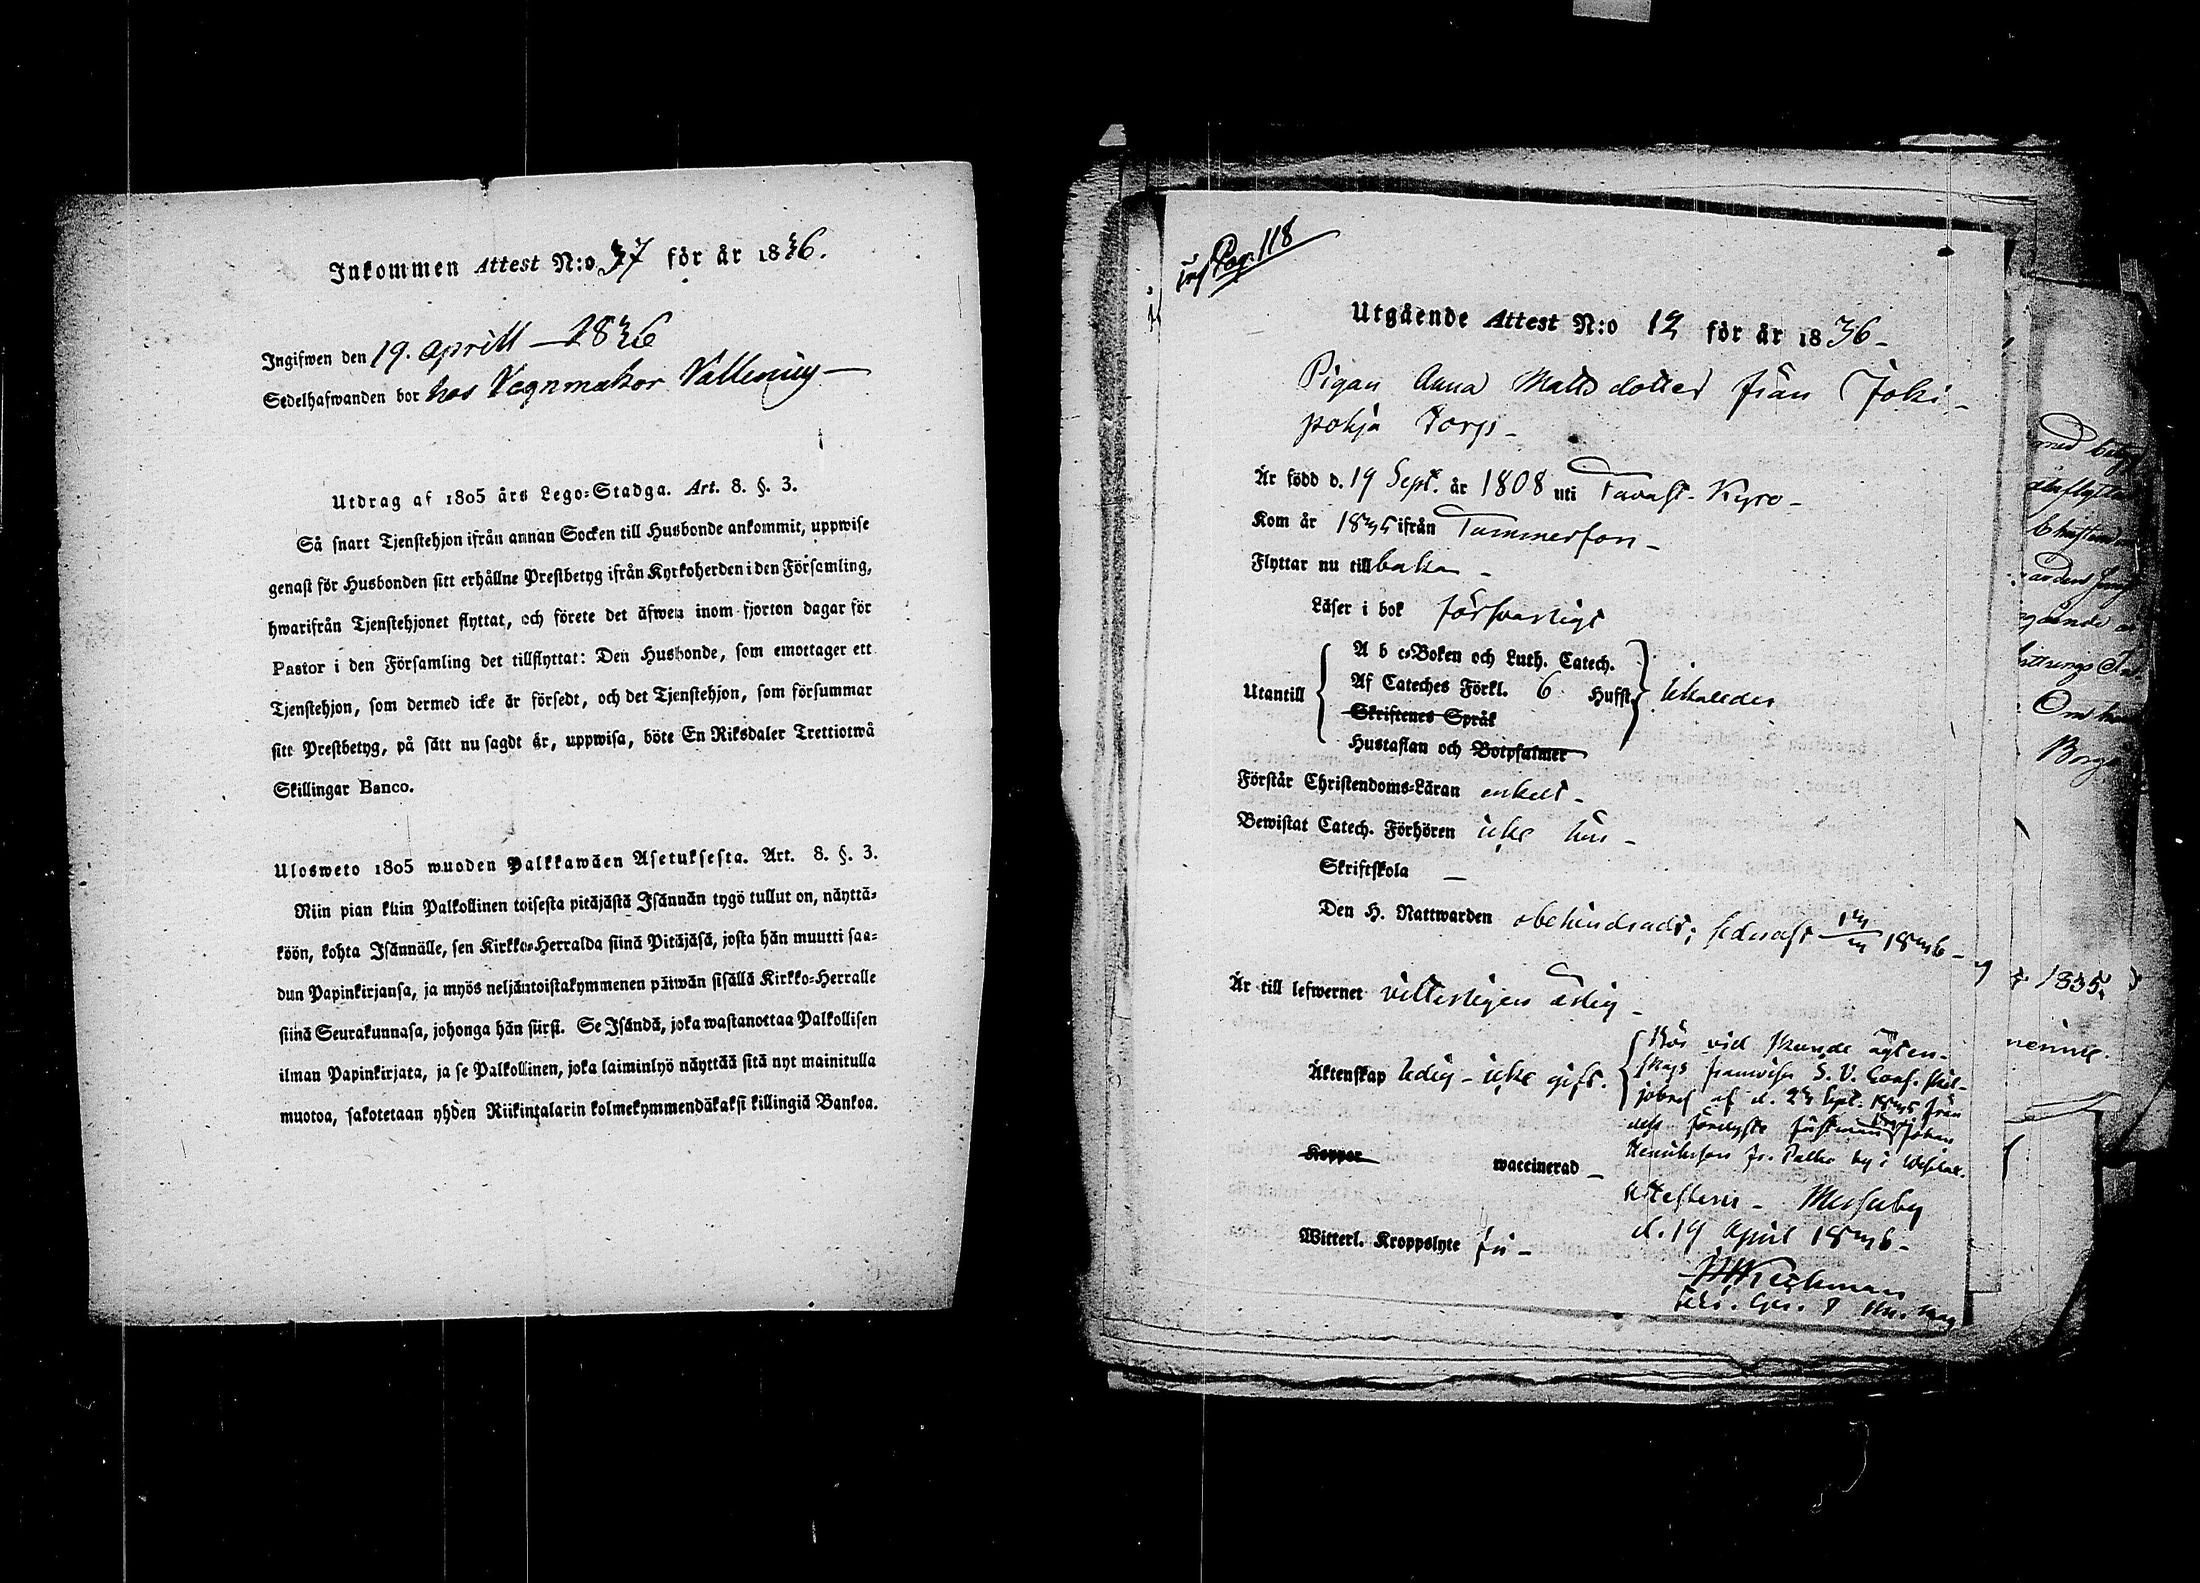 Inkommen Attest N:o 37 för år 1836.
Ingifwen den 19. aprill — 1836
Sedelhafwanden bor hos Vagnmakor Vallenius —
Utdrag af 1805 års Lego-Stadga. Art. 8. §. 3.
Så snart Tjenstehjon ifrån annan Socken till Husbonde ankommit, uppwise
genast för Husbonden sitt erhållne Prestbetyg ifrån Kyrkoherden i den Församling,
hwarifrån Tjenstehjonet flyttat, och förete det äfwen inom fjorton dagar för
Pastor i den Församling det tillflyttat: Den Husbonde, som emottager ett
Tjenstehjon, som dermed icke är försedt, och det Tjenstehjon, som försummar
sitt Prestbetyg, på sätt nu sagdt är, uppwisa, böte En Riksdaler Trettiotwå
Skillingar Banco.
Ulosweto 1805 wuoden Palkkawäen Asetuksesta. Art. 8. §. 3.
Niin pian kuin Palkollinen toisesta pitäjästä Isännän tygö tullut on, näyttä-
köön, kohta Isännälle, sen Kirkko-Herralda siinä Pitäjäsä, josta hän muutti saa-
dun Papinkirjansa, ja myös neljäntoistakymmenen päiwän sisällä Kirkko-Herralle
siinä Seurakunnasa, johonga hän siirsi. Se Isändä, joka wastanottaa Palkollisen
ilman Papinkirjata, ja se Palkollinen, joka laiminlyö näyttää sitä nyt mainitulla
muotoa, sakotetaan yhden Riikintalarin kolmekymmendäkaksi killingiä Bankoa.
Pag. 118
Utgående Attest N:o 12 för år 1836 –
Pigan Anna Matts dotter från Joki-
pohja Torp –
Är född d. 19 Sept. år 1808 uti Tavast-Kyro –
Kom år 1835 ifrån Tammerfors –
Flyttar nu tillbaka –
Läser i bok försvarligt
A b c-Boken och Luth. Catech.
Utantill Af Cateches Förkl. 6 Hufst. likaledes
Skriftenes Språk
Hustaflan och Botpsalmer
Förstår Christendoms-Läran enkelt –
Bewistat Catech. Förhören icke här –
Skriftskola –
Den H. Nattwarden obehindradt; sednast 1836 –
Är till lefwernet vitterligen ärlig –
Äktenskap ledig – icke gift.
Bör vid skeende ägten-
skap framvisa
af d. 23 Sept. 1835 från
dess Johan
Henriksson
Koppor waccinerad –
Attesteras – Messuby
d. 19 April 1836 –
Witterl. Kroppslyte fri –
1835